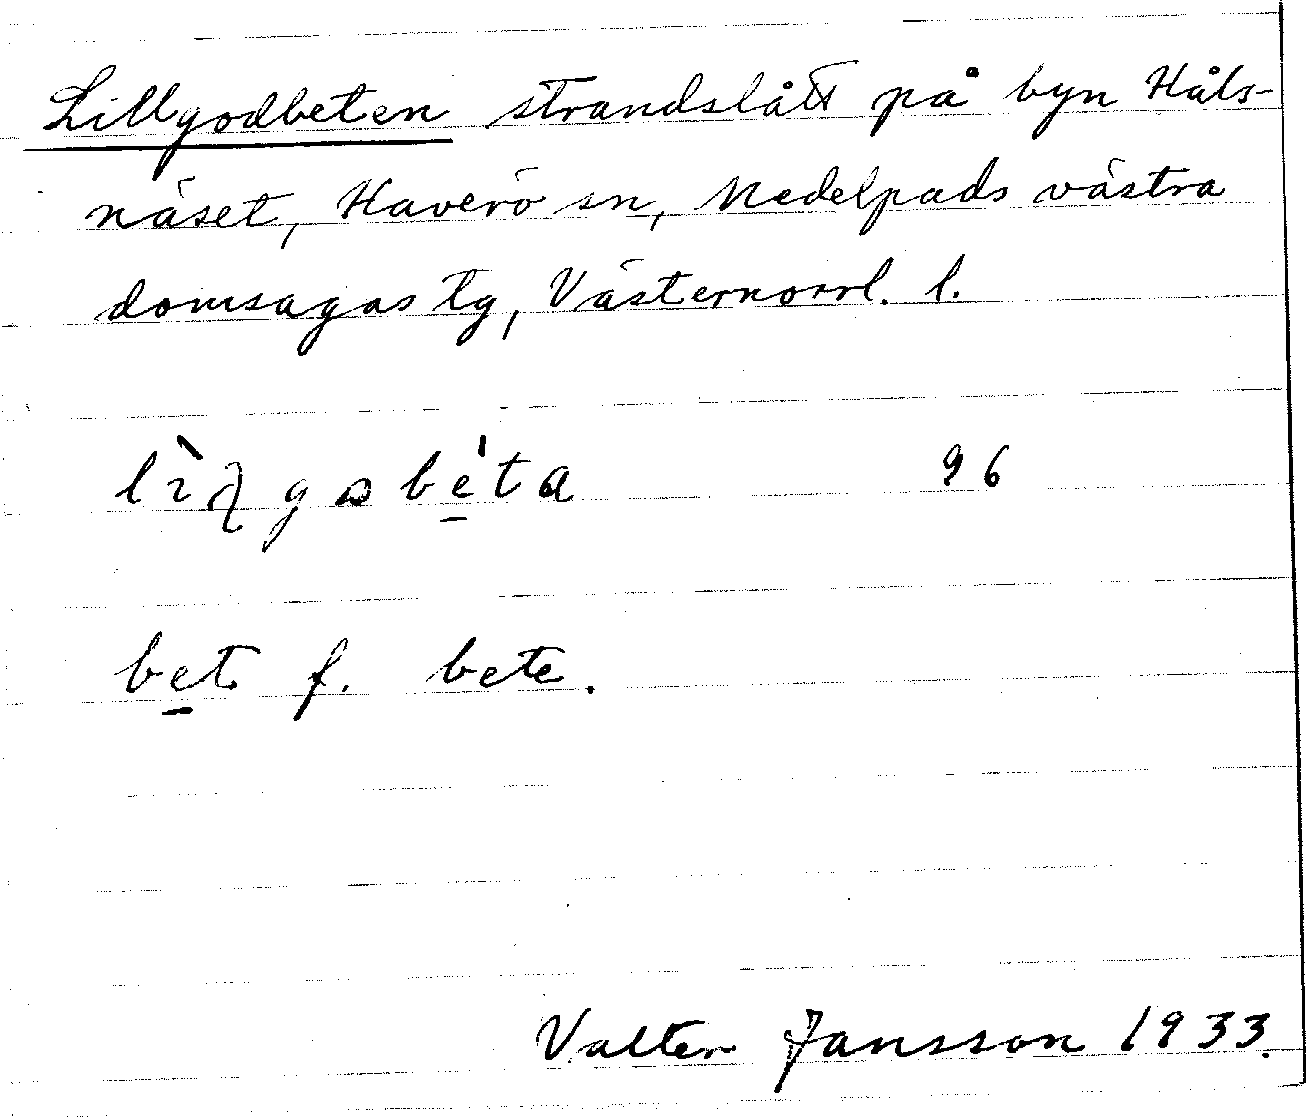 Lillgodbeten strandslått på byn Håls-
näset, Haverö sn, Medelpads västra
domsagas tg, Västernorrl. l.
96
bet f. bete.
Valter Jansson 1933.